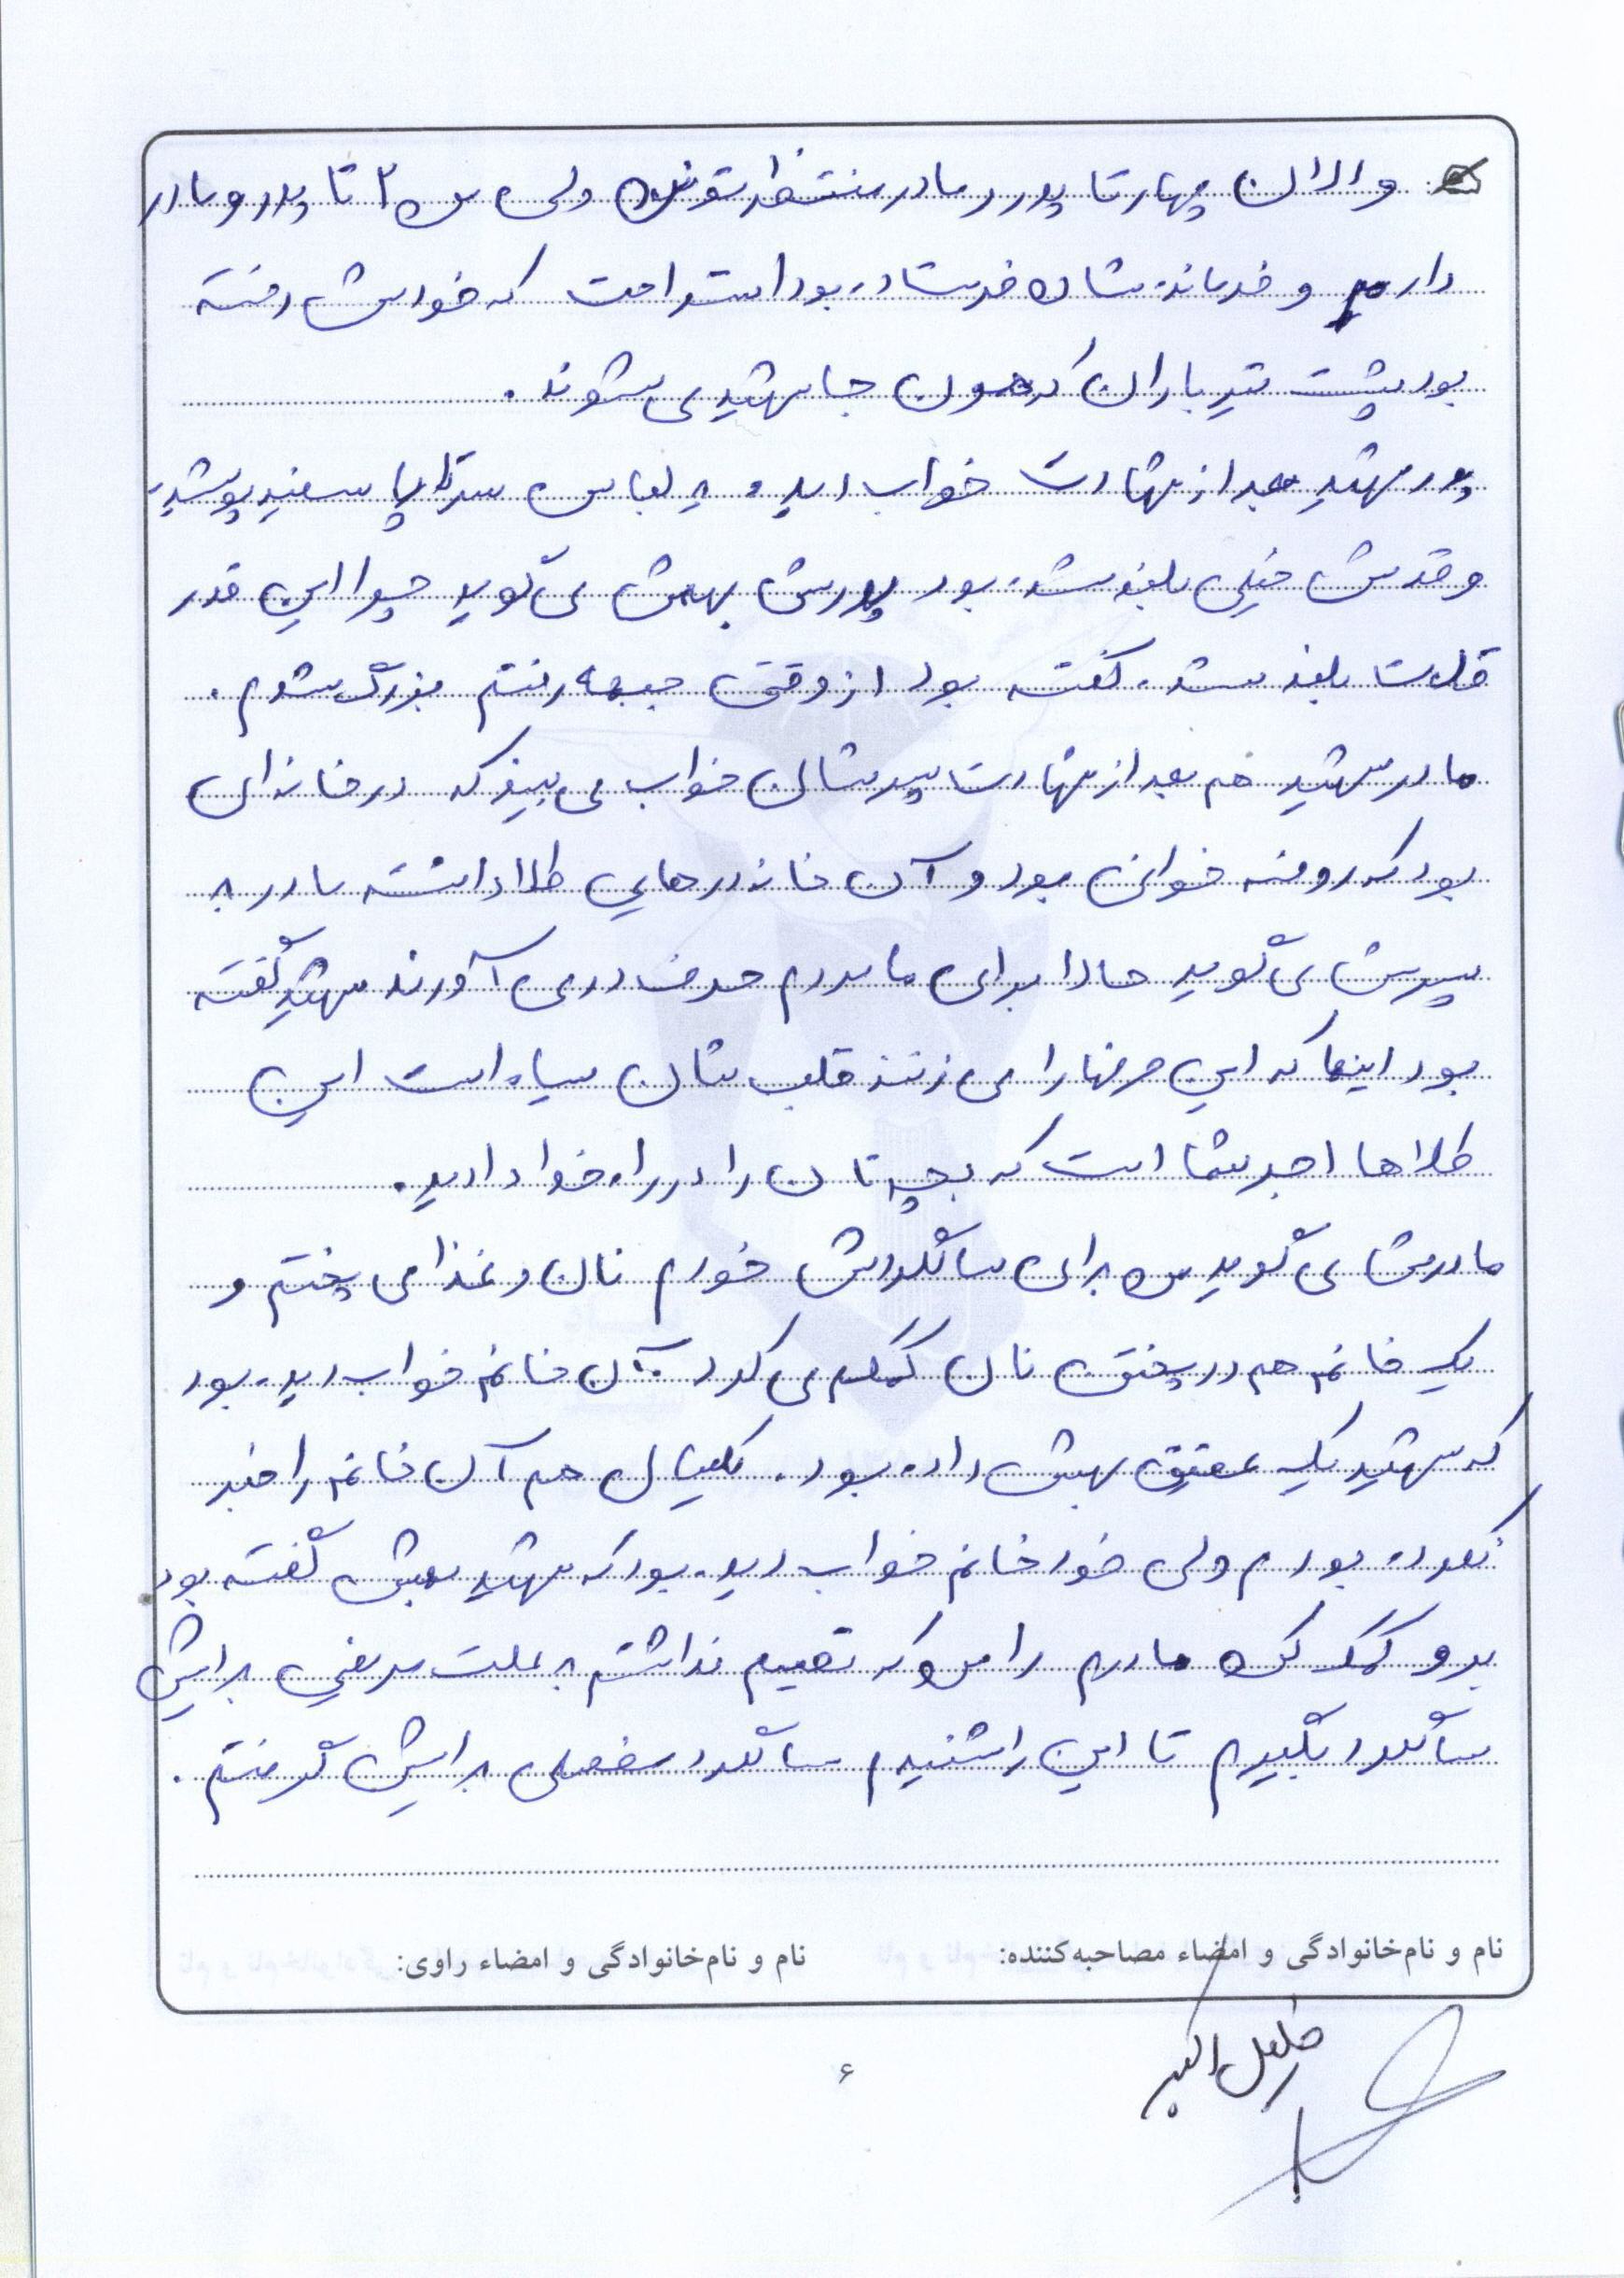 و الان چهار تا پدر و مادر منتظر تونن ولی من ۲ تا پدر و مادر
دارم و فرمانده شان فرستاده بود استراحت که خودش رفته
بود پشت تیرباران که همون جا شهید می شوند.
پدر شهید بعد از شهادت خواب دیده به لباس سرتاپا سفید پوشیده
و قدش خیلی بلند شده بود پدرش بهش می گوید چرا این قدر
قدت بلند شده، گفته بود از وقتی جبهه رفتم بزرگ شدم.
مادر شهید هم بعد از شهادت پسرشان خواب می بیند که در خانه ای
بود که روضه خوانی بود و آن خانه درهایی طلا داشته مادر به
پسرش می گوید حالا برای ما مردم حرف درمی آورند شهید گفته
بود اینها که این حرفها را می زنند قلب شان سیاه است این
طلاها اجر شما است که بچه تان را در راه خدا دادید.
مادرش می گوید من برای سالگردش خودم نان و غذا می پختم و
یک خانم هم در پختن نان کمکم می کرد. آن خانم خواب دیده بود
که شهید یک عقیق بهش داده بود. یکسال هم آن خانم را خبر
نکرده بودم ولی خود خانم خواب دیده بود که شهید بهش گفته بود
برو کمک کن مادرم را من که تصمیم نداشتم به علت مریضی برایش
سالگرد بگیرم تا این را شنیدم سالگرد مفصلی برایش گرفتم.
نام و نام‌خانوادگی و امضاء مصاحبه‌کننده: نام و نام‌خانوادگی و امضاء راوی:
خلیل اکبر
۶